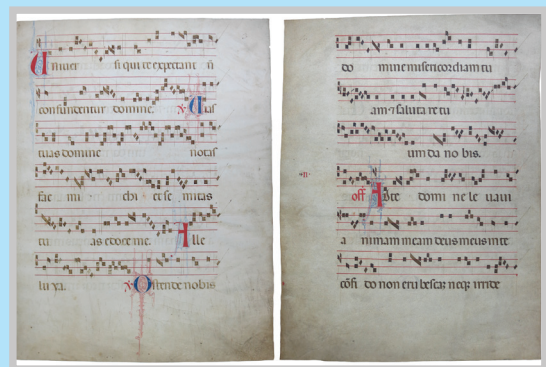 Uniuer si qui te expectant ñ
confundentur domine. ℣. Uias
tuas domine notas
fac mi chi et se mitas
tu as edoce me. Alle
lu ya. ℣. Ostende nobis
do mine misericordiam tu
am ⁊ saluta re tu
um da no bis.
·II·
off. Ad te domi ne le uaui
a nimam meam deus meus in te
cõfi do non erubescaz neqz irride